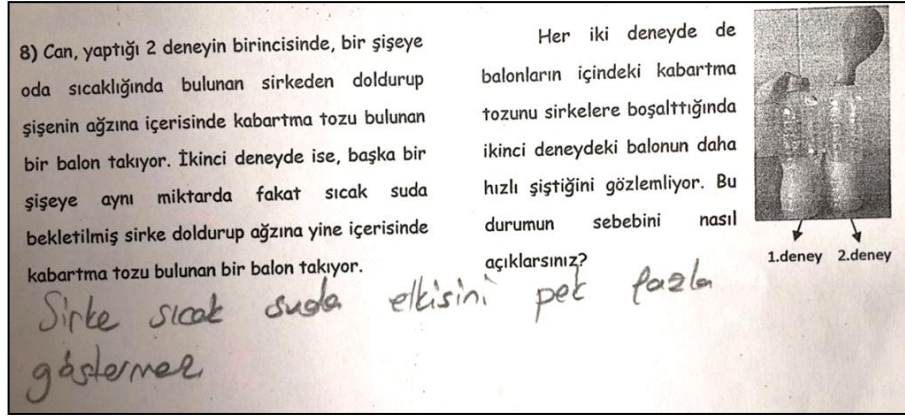 8) Can, yaptığı 2 deneyin birincisinde, bir şişeye
oda sıcaklığında bulunan sirkeden doldurup
şişenin ağzına içerisinde kabartma tozu bulunan
bir balon takıyor. İkinci deneyde ise, başka bir
şişeye aynı miktarda fakat sıcak suda
bekletilmiş sirke doldurup ağzına yine içerisinde
kabartma tozu bulunan bir balon takıyor.
Her iki deneyde de
balonların içindeki kabartma
tozunu sirkelere boşalttığında
ikinci deneydeki balonun daha
hızlı şiştiğini gözlemliyor. Bu
durumun sebebini nasıl
açıklarsınız?
1.deney 2.deney
Sirke sıcak suda etkisini pek fazla
göstermez